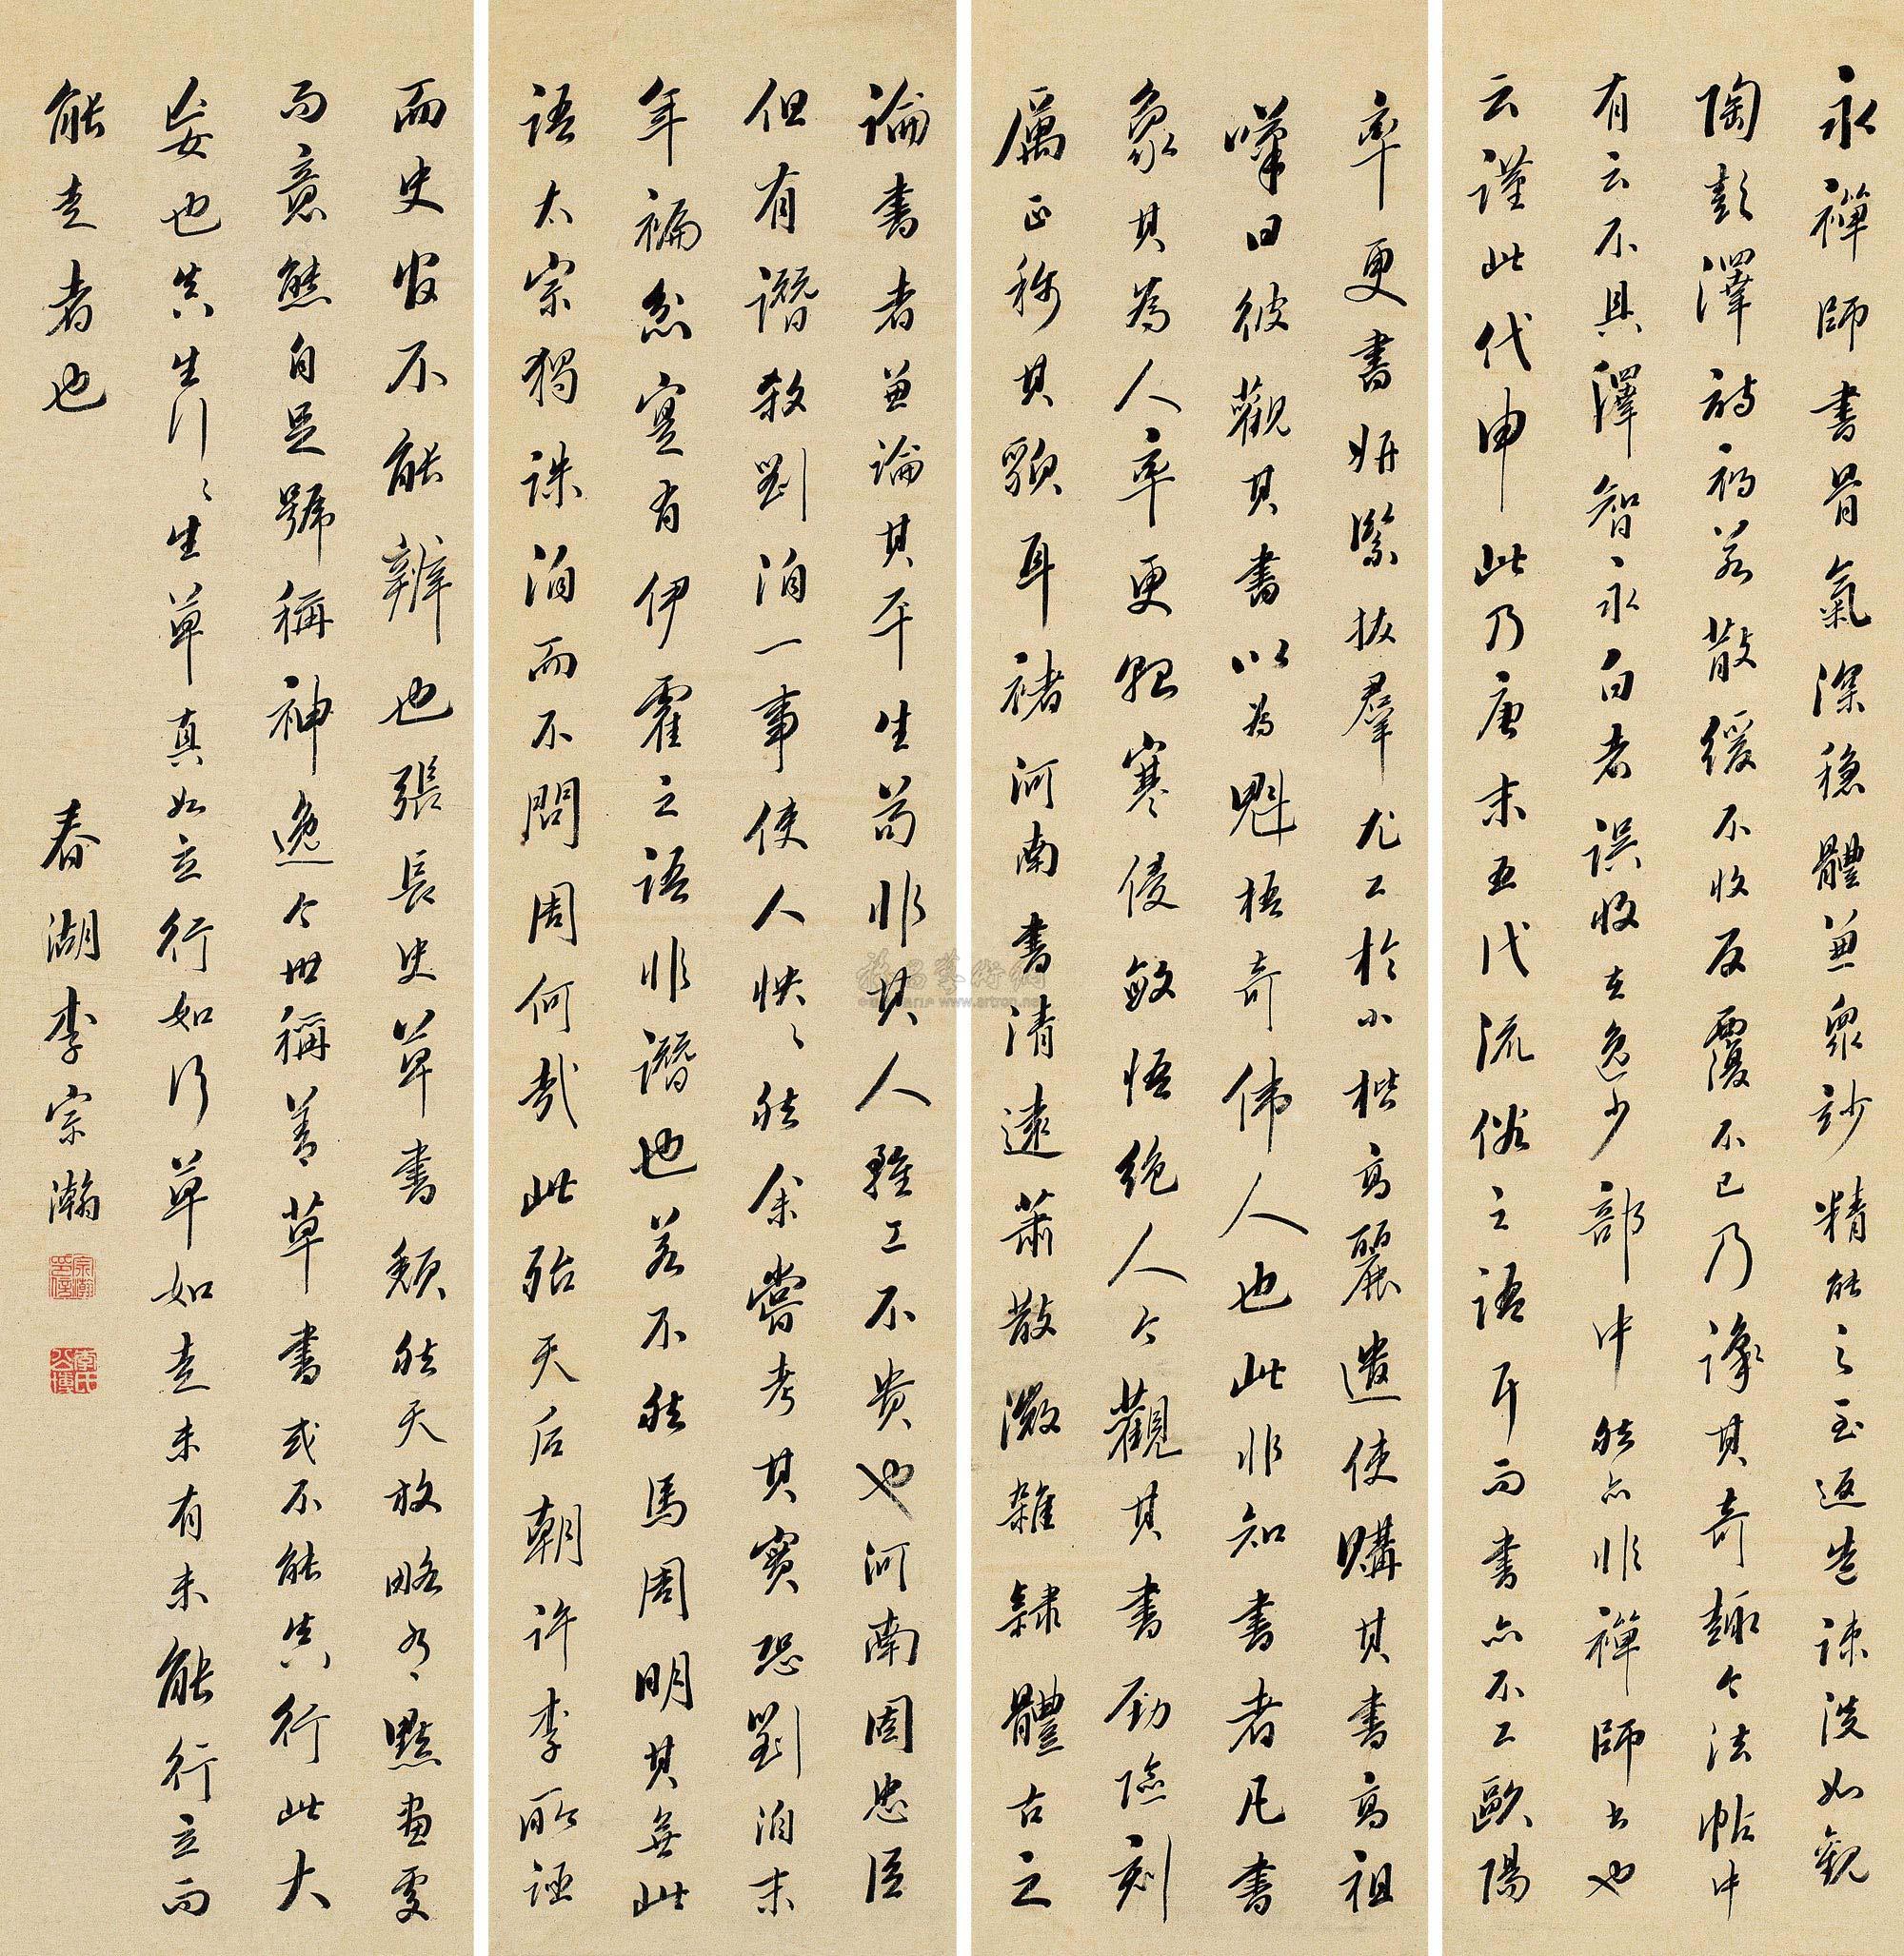 永禪師書骨氣深穩體兼眾妙精能之至返造疎淡如觀
陶彭澤詩初若散緩不收反覆不已乃識其奇趣今法帖中
有云不具釋智永白者誤收在逸少部中然亦非禪師書也
云謹此代申此乃唐末五代流俗之語耳而書亦不工歐陽
率更書妍緊拔羣尤工於小楷高麗遣使購其書高祖
嘆曰彼觀其書以為魁梧奇偉人也此非知書者凡書
象其為人率更貌寒侵敏悟絕人今觀其書勁險刻
厲正稱其貌耳褚河南書清遠蕭散微雜隸體古之
論書者兼論其平生苟非其人雖工不貴也河南固忠臣
但有譖殺劉洎一事使人怏〻然余嘗考其實恐劉洎末
年褊忿實有伊霍之語非譖也若不然馬周明其無此
語太宗獨誅洎而不問周何哉此殆天后朝許李所誣
而史官不能辨也張長史草書頹然天放略有點畫處
而意態自足號稱神逸今世稱善草書或不能真行此大
妄也真生行〻生草真如立行如行草如走未有未能行立而
能走者也
春湖李宗瀚
宗瀚印信
李氏公博